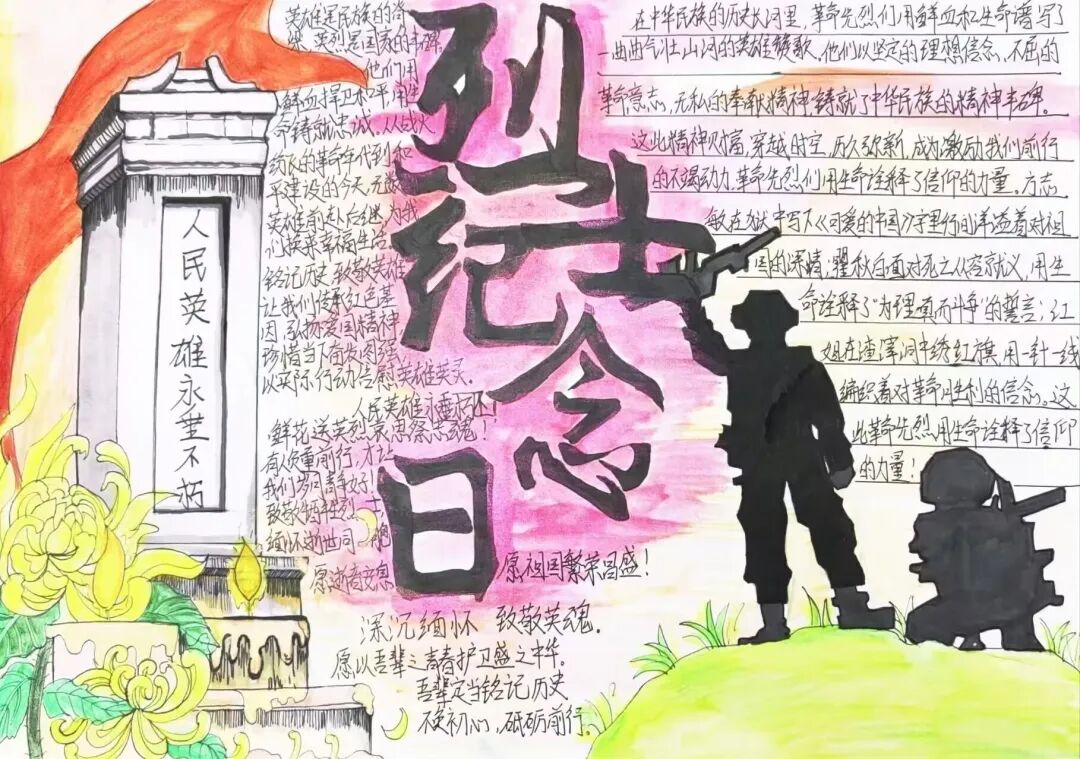 烈士纪念日
人民英雄永垂不朽
英雄是民族的脊
梁,英烈是国家的丰碑
他们用
鲜血捍卫和平,用生
命铸就忠诚。从战火
纷飞的革命年代到和
平建设的今天,无数
英雄前赴后继,为我
们换来幸福生活。
铭记历史,致敬英雄
让我们传承红色基
因,弘扬爱国精神
珍惜当下,奋发图强,
以实际行动告慰英雄英灵。
人民英雄永垂不朽!
鲜花送英烈,哀思祭忠魂!
有人负重前行,才让
我们岁月静好!
致敬
缅怀
愿
愿祖国繁荣昌盛!
深沉缅怀 致敬英魂.
愿以吾辈之青春护卫盛之中华。
吾辈定当铭记历史
不变初心,砥砺前行。
在中华民族的历史长河里,革命先烈们用鲜血和生命谱写了
一曲曲气壮山河的英雄赞歌。他们以坚定的理想信念,不屈的
革命意志,无私的奉献精神,铸就了中华民族的精神丰碑。
这些精神财富,穿越时空,历久弥新,成为激励我们前行
的不竭动力。革命先烈们用生命诠释了信仰的力量。方志
敏在狱中写下《可爱的中国》,字里行间洋溢着对祖
国的深情;瞿秋白面对死亡从容就义,用生
命诠释了“为理真而斗争”的誓言;江
姐在渣滓洞中绣红旗,用一针一线
编织着对革命胜利的信念。这
些革命先烈,用生命诠释了信仰
的力量!